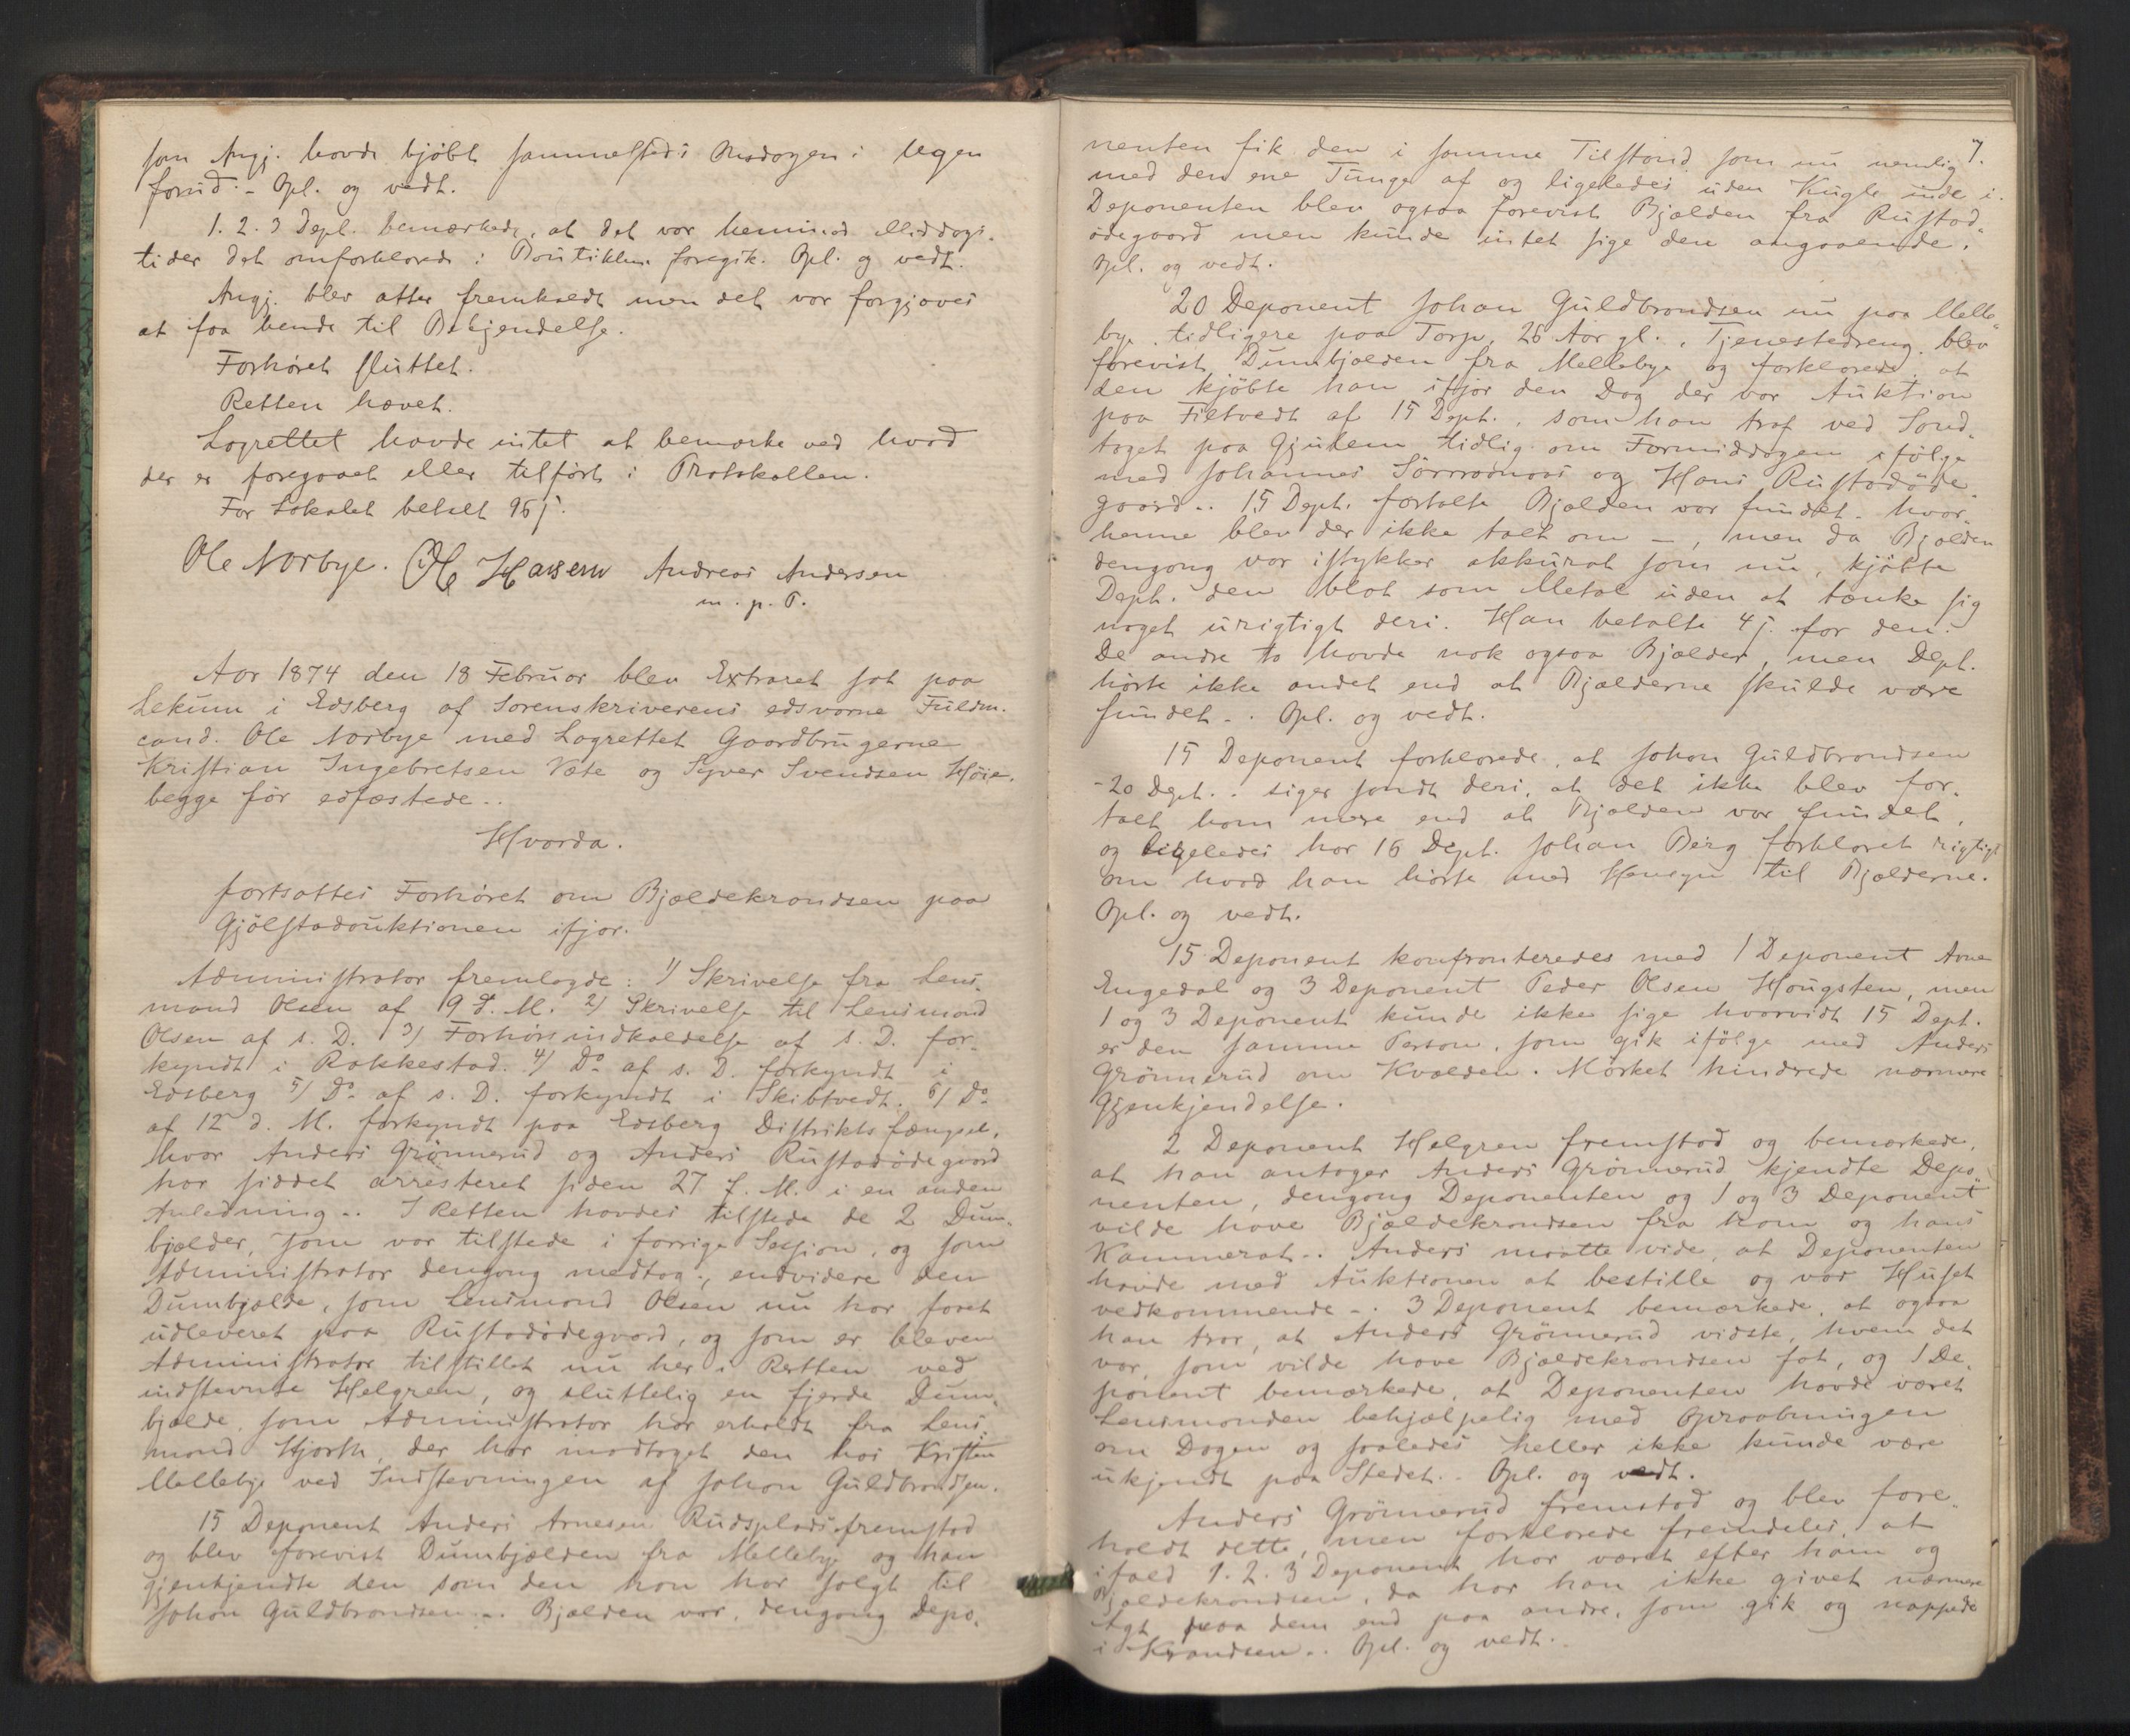 som Angj. havde kjöbt sammesteds Onsdagen i Ugen
forud. - Opl. og vedt.
1. 2. 3 Dept. bemærkede, at det var henimod Middags-
tider det omforklarede i Boutikken foregik. Opl. og vedt.
Angj. blev atter fremkaldt men det var forgjæves
at faa hende til Bekjendelse.
Forhöret sluttet.
Retten hævet.
Lagrettet havde intet at bemærke ved hvad
der er foregaaet eller tilfört i Protokollen.
For Lokalet betalt 96 ſ.
Ole Norbye. Ole Hansen Andreas Andersen
m. p. P.
Aar 1874 den 18 Februar blev Extraret sat paa
Lekum i Edsberg af Sorenskriverens edsvorne Fuldm.
cand. Ole Norbye med Lagrettet Gaardbrugerne
Kristian Ingebretsen Væte og Syver Svendsen Höie.
begge för edfæstede..
Hvorda.
fortsattes Forhöret om Bjældekrandsen paa
Gjölstadauktionen ifjor.
Administrator fremlagde: 1) Skrivelse fra Lens-
mand Olsen af 9 d. M. 2) Skrivelse til Lensmand
Olsen af s. D. 3) Forhörsindkaldelse af s. D. for-
kyndt i Rakkestad. 4) Do af s. D. forkyndt i
Edsberg 5) Do af s. D. forkyndt i Skibtvedt. 6) Do
af 12 d. M. forkyndt paa Edsberg Distriktsfængsel,
hvor Anders Grönnerud og Anders Rustadödegaard
har siddet arresteret siden 27 f. M. i en anden
Anledning.. I Retten havdes tilstede de 2 Dum-
bjælder, som var tilstede i forrige Session, og som
Administrator dengang medtog., endvidere den
Dumbjælde, som Lensmand Olsen nu har faaet
udleveret paa Rustadödegaard, og som er bleven
Administrator tilstillet nu her i Retten ved
indstevnte Helgren, og sluttelig en fjerde Dum-
bjælde, som Administrator har erholdt fra Lens-
mand Hjorth, der har modtaget den hos Kristian
Mellebye ved Indstevningen af Johan Guldbrandsen.
15 Deponent Anders Arnesen Rudsplads fremstod
og blev forevist Dumbjælden fra Mellebye og han
gjenkjendte den som den han har solgt til
Johan Guldbrandsen.. Bjælden var, dengang Depo-
7.
nenten fik den i samme Tilstand som nu nemlig
med den ene Tunge af og ligeledes uden Kugle inde i.
Deponenten blev ogsaa forevist Bjælden fra Rustad-
ödegaard men kunde intet sige den angaaende.
Opl. og vedt.
20 Deponent Johan Guldbrandsen nu paa Melle-
bye, tidligere paa Torp, 26 Aar gl., Tjenestedreng, blev
forevist Dumbjælden fra Mellebye og forklarede, at
den kjöbte han ifjor den Dag der var Auktion
paa Filtvedt af 15 Dept., som han traf ved Sand-
taget paa Gjulem tidlig om Formiddagen ifölge
med Johannes Sörraanaas og Hans Rustadöde-
gaard.. 15 Dept. fortalte Bjælden var fundet - hvor-
henne blev der ikke talt om -, men da Bjælden
dengang var istykker akkurat som nu, kjöbte
Dept. den blot som Metal uden at tænke sig
noget urigtigt deri. Han betalte 4 ſ. for den.
De andre to havde nok ogsaa Bjælder, men Dept.
hörte ikke andet end at Bjælderne skulde være
fundet. -. Opl. og vedt.
15 Deponent forklarede, at Johan Guldbrandsen
- 20 Dept. - siger sandt deri, at det ikke blev for-
talt ham mere end at Bjælden var fundet,
og ligeledes har 16 Dept. Johan Berg forklaret rigtigt
om hvad han hörte med Hensyn til Bjælderne.
Opl. og vedt.
15 Deponent konfronteredes med 1 Deponent Arne
Engedal og 3 Deponent Peder Olsen Haugsten, men
1 og 3 Deponent kunde ikke sige hvorvidt 15 Dept.
er den samme Person, som gik ifölge med Anders
Grönnerud om Kvælden. Mörket hindrede nærmere
Gjenkjendelse.
2 Deponent Helgren fremstod og bemærkede,
at han antager Anders Grönnerud kjendte Depo-
nenten, dengang Deponenten og 1 og 3 Deponent
vilde have Bjældekrandsen fra ham og hans
Kammerat.. Anders maatte vide, at Deponenten
havde med Auktionen at bestille og var Huset
vedkommende -. 3 Deponent bemærkede, at ogsaa
han tror, at Anders Grönnerud vidste, hvem det
var, som vilde have Bjældekrandsen fat, og 1 De-
ponent bemærkede, at Deponenten havde været
Lensmanden behjælpelig med Opraabningen
om Dagen og saaledes heller ikke kunde være
ukjendt paa Stedet.. Opl. og vedt.
Anders Grönnerud fremstod og blev fore-
holdt dette, men forklarede fremdeles, at
ifald 1. 2. 3 Deponent har været efter ham og
Bjældekrandsen, da har han ikke givet nærmere
Agt paa dem end paa andre, som gik og nappede
i Krandsen.. Opl. og vedt.